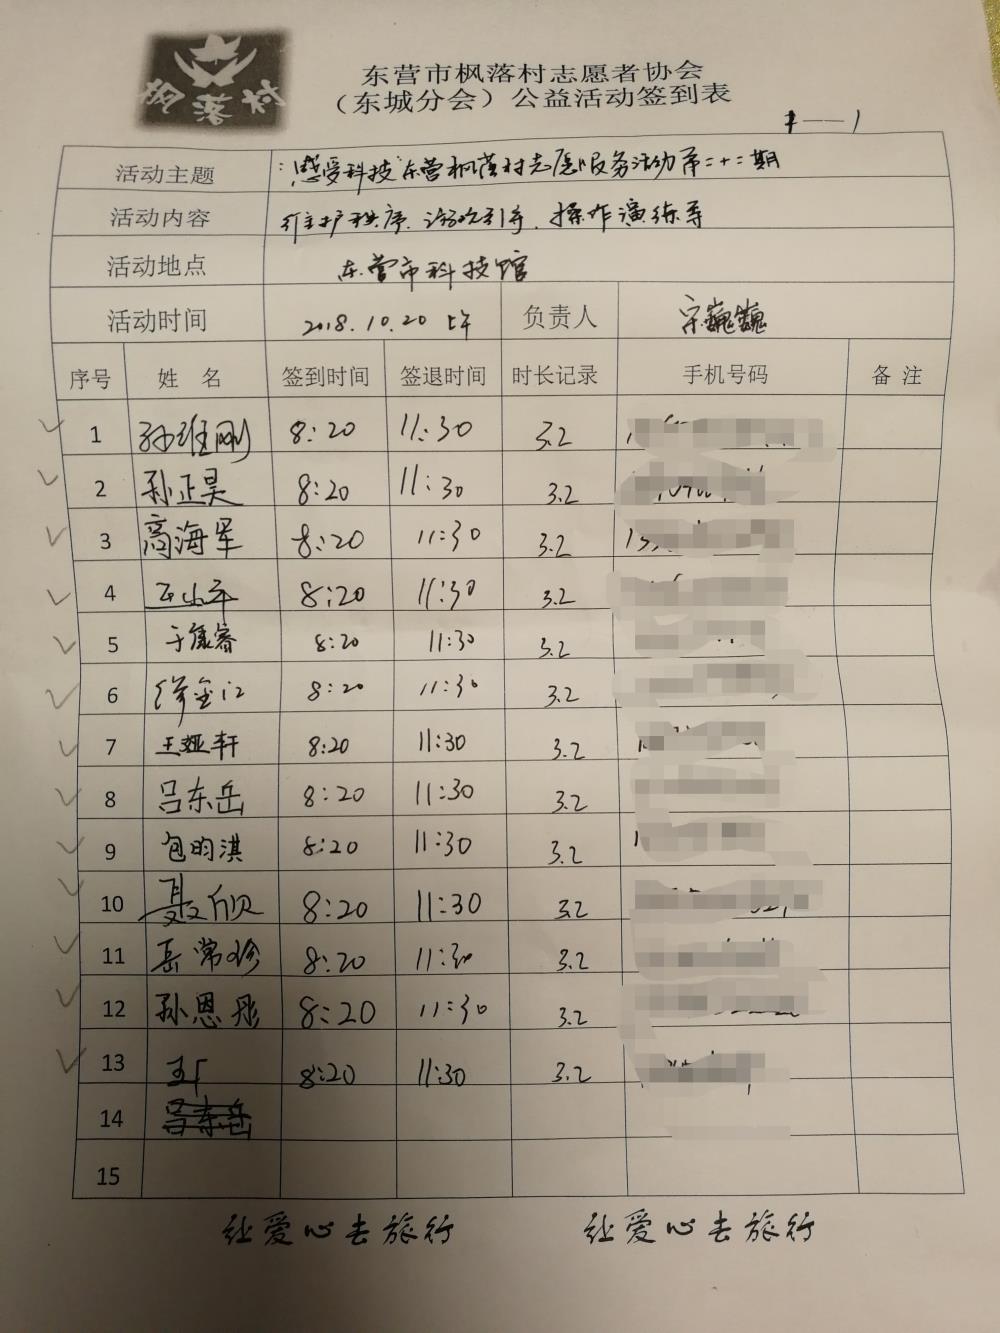 枫落村
东营市枫落村志愿者协会
（东城分会）公益活动签到表
活动主题 “感受科技”东营枫落村志愿服务活动第二十二期
活动内容 维护秩序、游玩引导、操作演练等
活动地点 东营市科技馆
活动时间 2018.10.20 上午 负责人 宋巍巍
序号 姓 名 签到时间 签退时间 时长记录 手机号码 备 注
1 孙维刚 8:20 11:30 3.2
2 孙正昊 8:20 11:30 3.2
3 高海军 8:20 11:30 3.2
4 8:20 11:30 3.2
5 8:20 11:30 3.2
6 8:20 11:30 3.2
7 王娅轩 8:20 11:30 3.2
8 吕东岳 8:20 11:30 3.2
9 包昀淇 8:20 11:30 3.2
10 8:20 11:30 3.2
11 岳常珍 8:20 11:30 3.2
12 孙恩彤 8:20 11:30 3.2
13 8:20 11:30 3.2
14 吕东岳
15
让爱心去旅行 让爱心去旅行